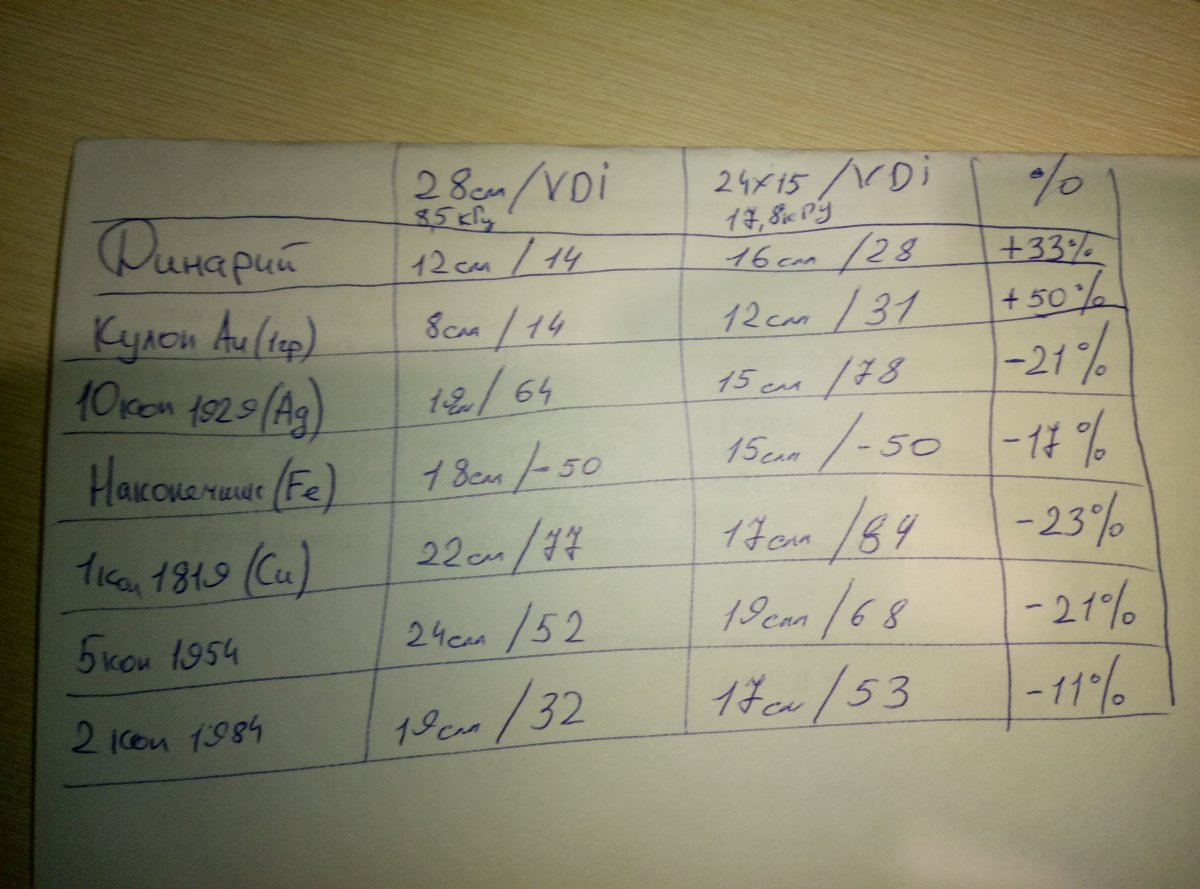 28см/VDi 24x15/VDi %
8,5кГц 17,8кГц
Динарий 12см/14 16см/28 +33%
Кулон Au(1гр) 8см/14 12см/31 +50%
10коп 1929(Ag) 19см/64 15см/78 -21%
Наконечник(Fe) 18см/-50 15см/-50 -17%
1коп 1819(Cu) 22см/77 17см/84 -23%
5коп 1954 24см/52 19см/68 -21%
2коп 1984 19см/32 17см/53 -11%